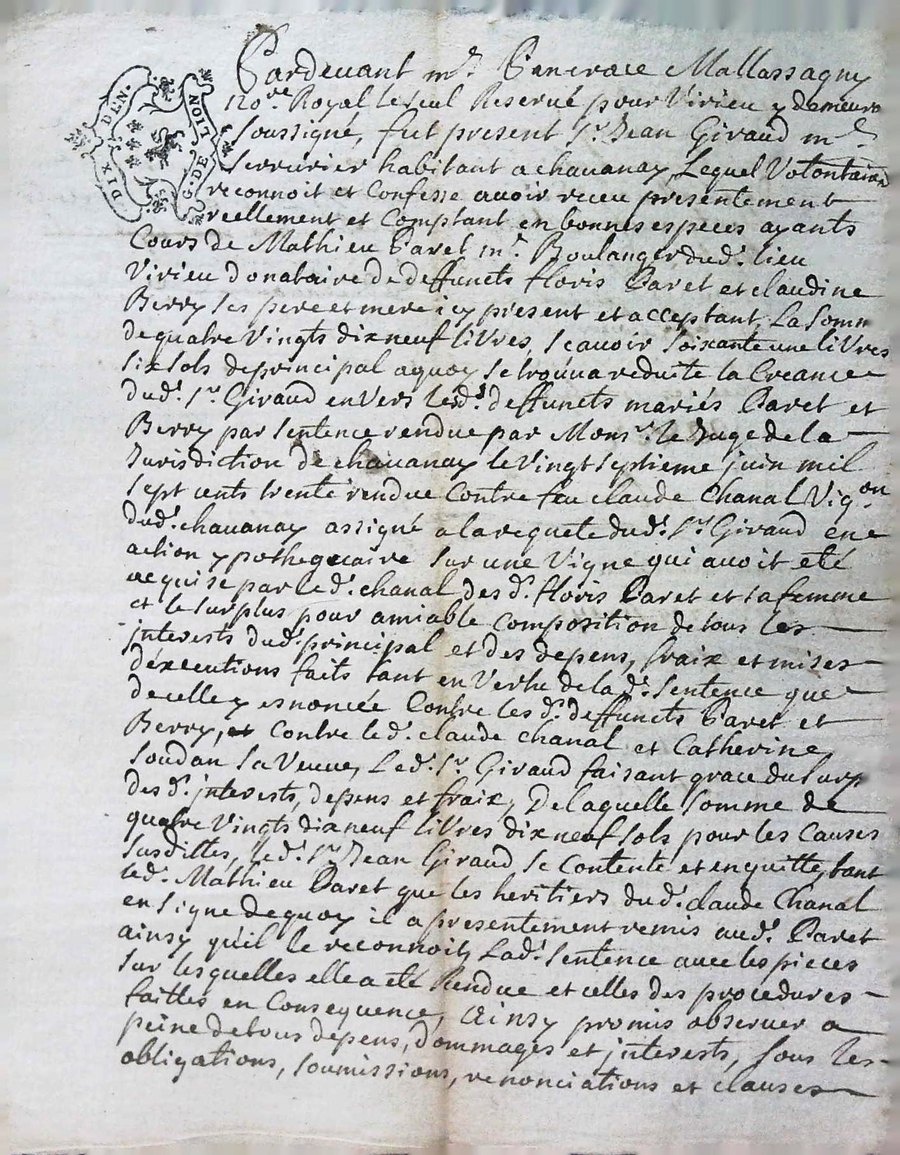 DIX DEN. G. DE LION
Pardevant mᵉ. Pancrace Mallassagny
noʳᵉ Royal le seul Reservé pour Virieu y demeurᵗ
soussigné, fut present Sʳ. Jean Giraud mᵉ.
serrurier habitant a chavanay, Lequel Volontairᵗ
reconnoit et Confesse avoir receu presentement
reellement et Comptant en bonnes especes ayants
Cours de Mathieu Paret mᵉ. Boulanger dud. lieu
Virieu donataire de deffuncts floris Paret et claudine
Berry ses pere et mere icy present et acceptant, La somm
de quatre Vingts dixneuf livres, scavoir soixante une livres
six sols de principal a quoy se trouva reduite la Creance
dud. sʳ. Giraud envers lesd. deffuncts mariés Paret et
Berry par sentence rendue par Monsʳ. le Juge de la
Jurisdiction de chavanay le Vingt septieme juin mil
sept cents trente rendue Contre feu claude Chanal Vigᵒⁿ
dud. chavanay assigné a la requete dud. sʳ. Giraud en
action ypothequaire sur une Vigne qui avoit eté
acquise par led. chanal des d. floris Paret et sa femme
et le surplus pour amiable composition de tous les
interests dud. principal et des depens, fraix et mises
d'éxecutions faits tant en Vertu de lad. sentence que
d'icelle y esnoncée Contre les d. deffuncts Paret et
Berry, et Contre led. claude Chanal et Catherine
Soudan sa Veuve, Led. sʳ. Giraud faisant grace du surp
des d. interests, depens et fraix, De laquelle somme de
quatre Vingts dixneuf livres dixneuf sols pour les Causes
susdittes, led. sʳ. Jean Giraud se Contente et en quitte, tant
led. Mathieu Paret que les heritiers dud. claude Chanal
en signe dequoy il a presentement remis aud. Paret
ainsy qu'il le reconnoit, Lad. sentence avec les pieces
sur lesquelles elle a eté Rendue et celles des procedures
faittes en Consequence, Ainsy promis observer a
peine de tous depens, dommages et interests, sous les
obligations, soumissions, renonciations et clauses